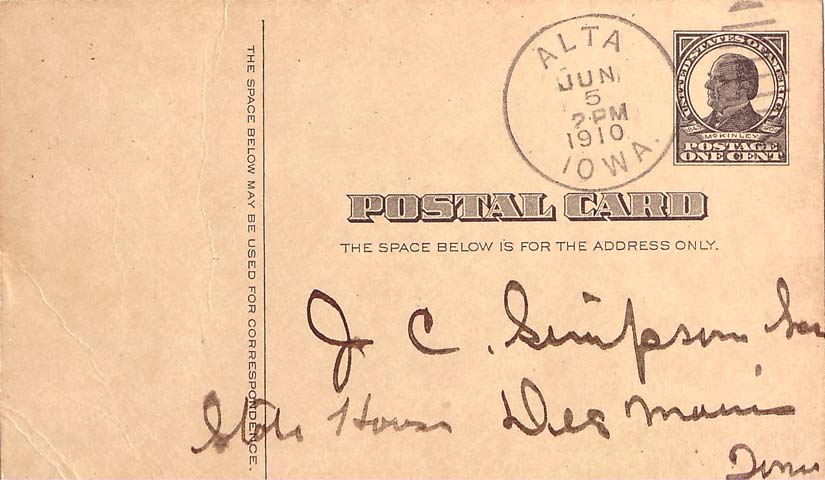 ALTA
JUN
5
2-PM
1910
IOWA.
UNITED STATES OF AMERICA
1843 McKINLEY 1901
POSTAGE
ONE CENT
POSTAL CARD
THE SPACE BELOW IS FOR THE ADDRESS ONLY.
THE SPACE BELOW MAY BE USED FOR CORRESPONDENCE.
J C. Simpson
State House Des Moines